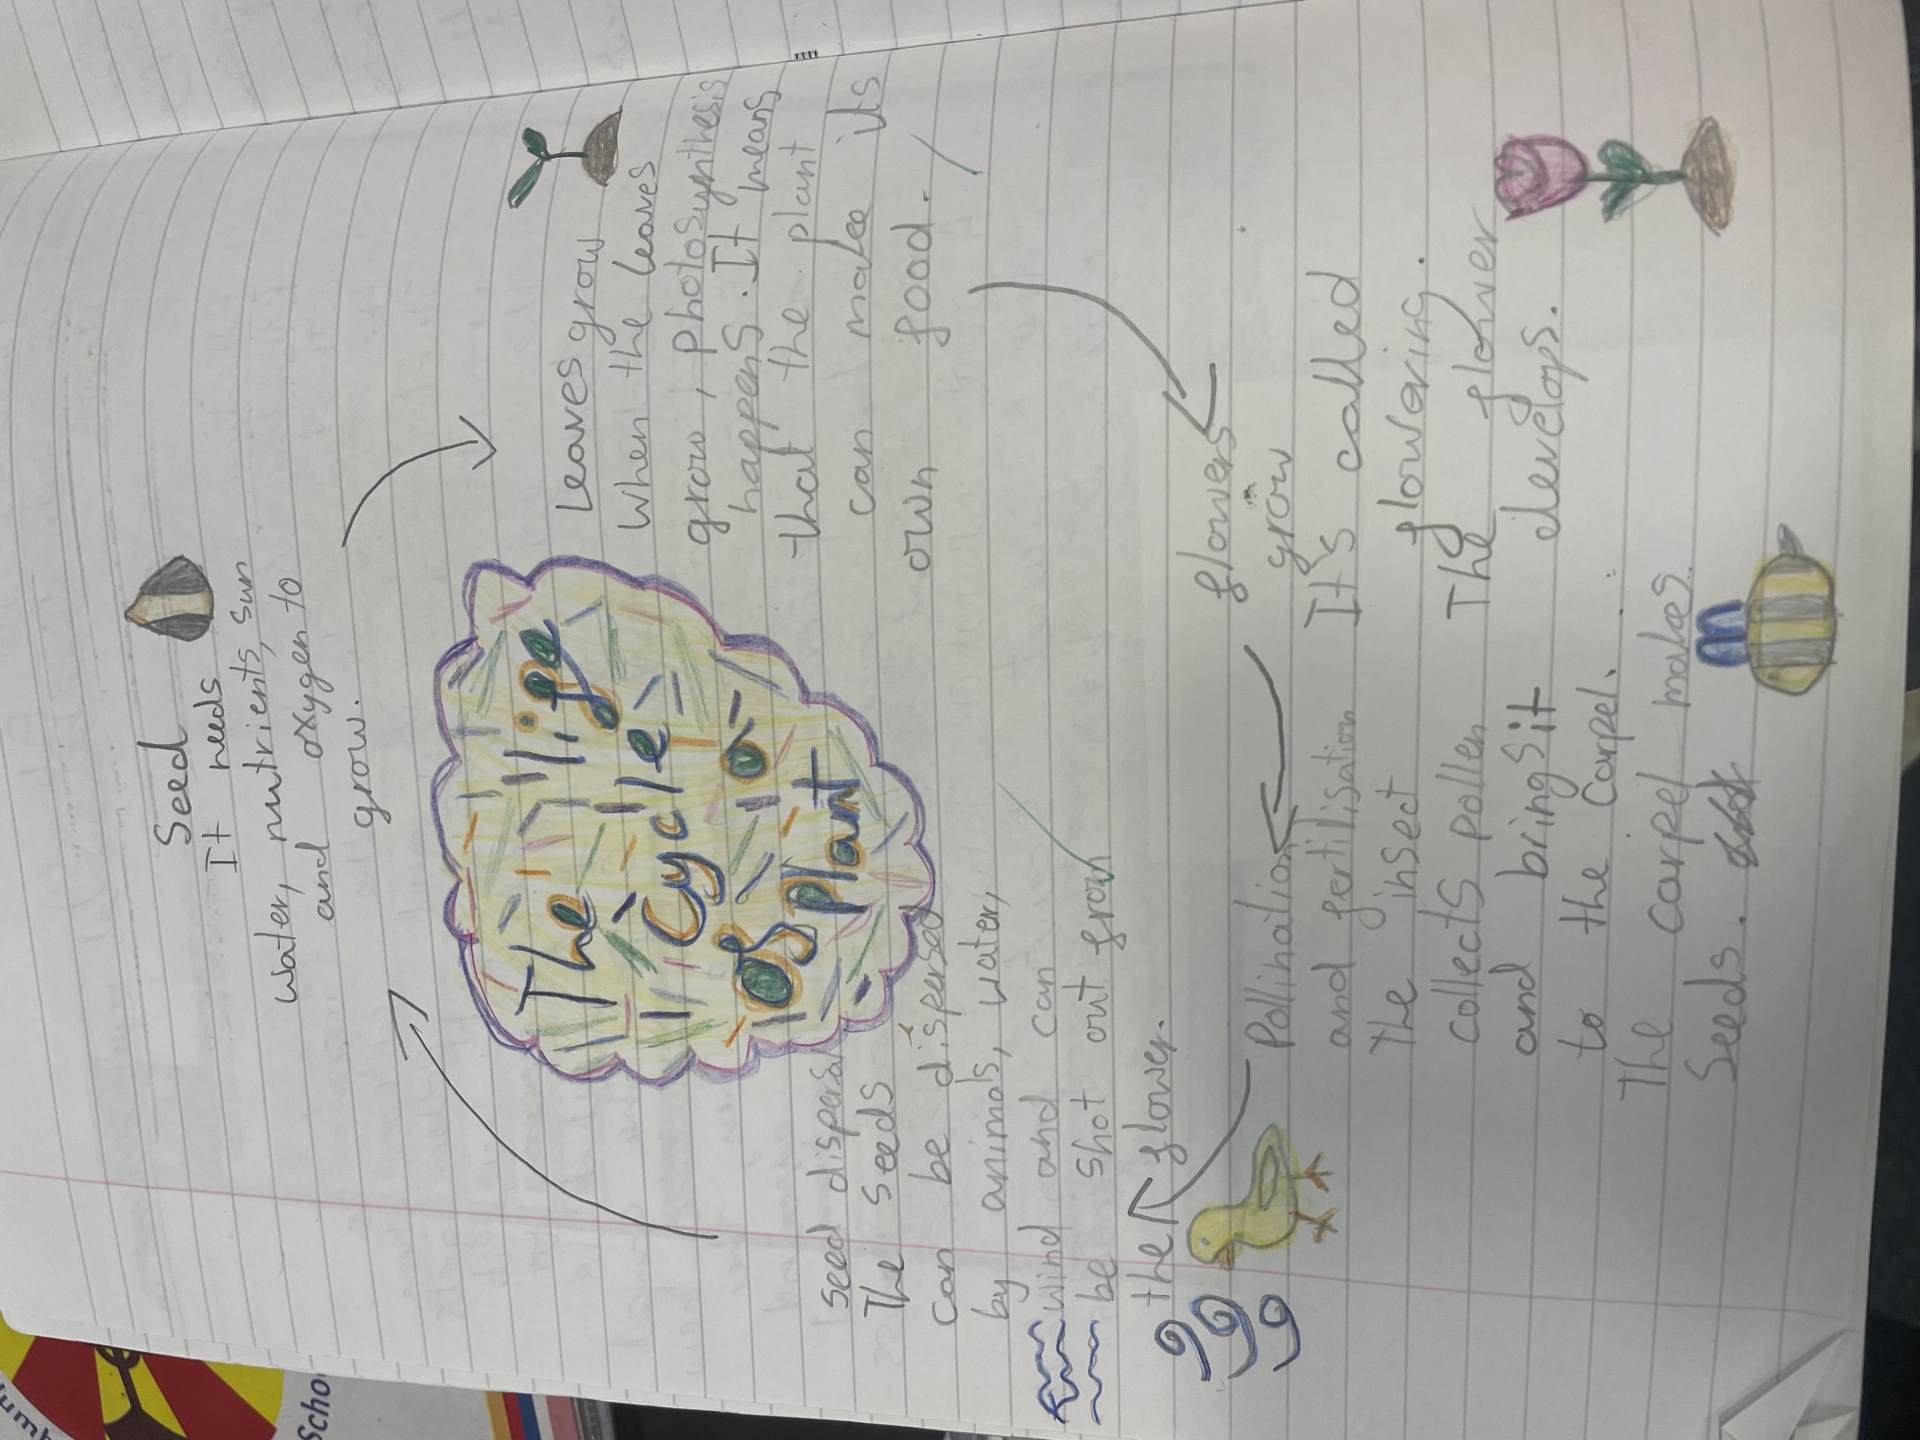 Seed
It needs
water, nutrients, sun
and oxygen to
grow.
Leaves grow
When the leaves
grow, photosynthesis
happens. It means
that the plant
can make its
own food.
flowers
grow
It's called
flowering.
The flower
develops.
Pollination
and fertilisation
The insect
collects pollen
and brings it
to the carpel.
The carpel makes
seeds.
Seed dispersal
The seeds
can be dispersed
by animals, water,
wind and can
be shot out from
the flower.
The life
cycle
of a
plant
Scho